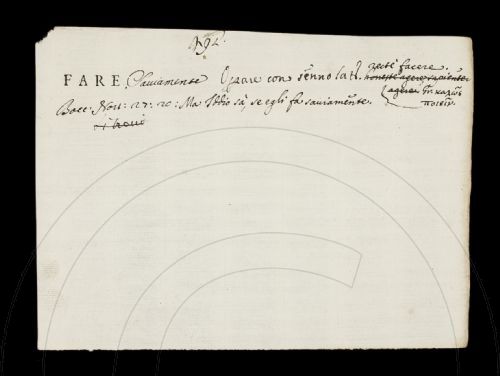 492.
FARE, Saviamente Oprare con senno lat. recte facere. honeste agere, sapienter
agere gr. καλῶς
ποιεῖν.
Bocc: Nov: 27: 20: Ma Iddio sà, se egli fa saviamente.
si trovò